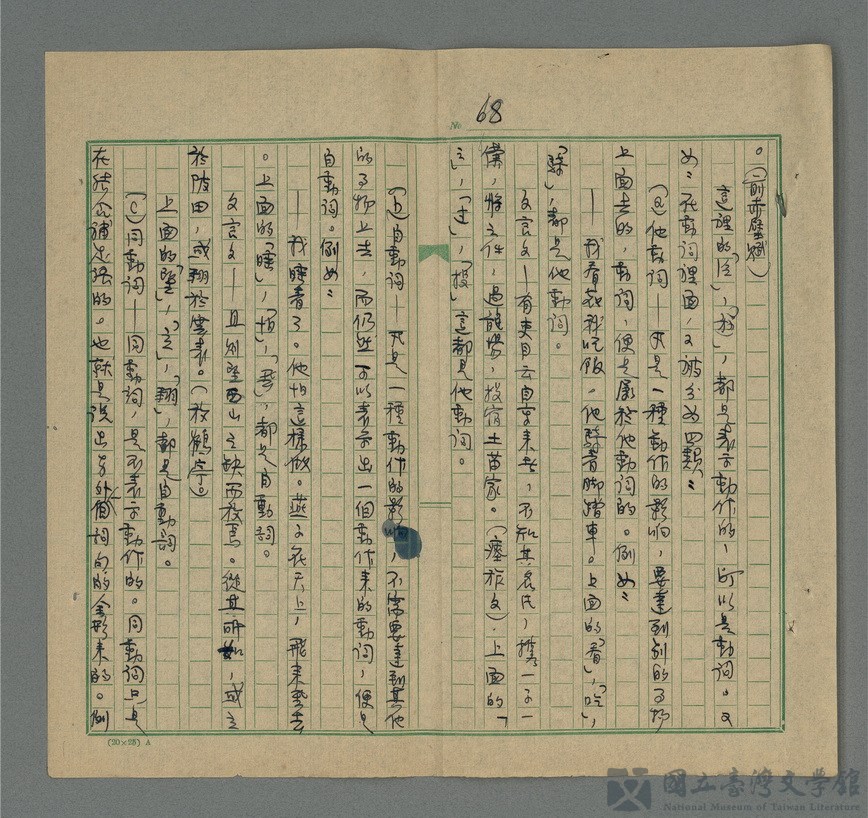 № 68
。(前赤壁賦)
這裡的「泛」，「遊」，都是表示動作的，所以是動詞。又
如：在動詞裡面，又被分為四類：
(a)他動詞—凡是一種動作的影响，要達到別的事物
上面去的，動詞，便是屬於他動詞的。例如：
—我看花我吃飯。他踩着脚踏車。上面的「看」，「吃」，
「踩」，都是他動詞。
文言文—有吏目云自京来者，不知其名氏，攜一子一
僕，將之任，過龍場，投宿土苗家。(瘞旅文)。上面的「
云」，「過」，「投」這都是他動詞。
(b)自動詞—凡是一種動作的影响，不需要達到其他
的事物上去，而仍然可以表示出一個動作来的動詞，便是
自動詞。例如：
—我睡着了。他怕這樣做。燕子在天上，飛来飛去
。上面的「睡」，「怕」，「飛」，都是自動詞。
文言文—且則望西山之缺而放焉。從其所如，或立
於陂田，或翔於雲表。(放鶴亭)
上面的「望」，「立」，「翔」，都是自動詞。
(c)同動詞—同動詞，是不表示動作的。同動詞只是
在結合補足語的。也就是說出另外個詞句的全形来的。例
(20×25) A
國立臺灣文學館
National Museum of Taiwan Literature